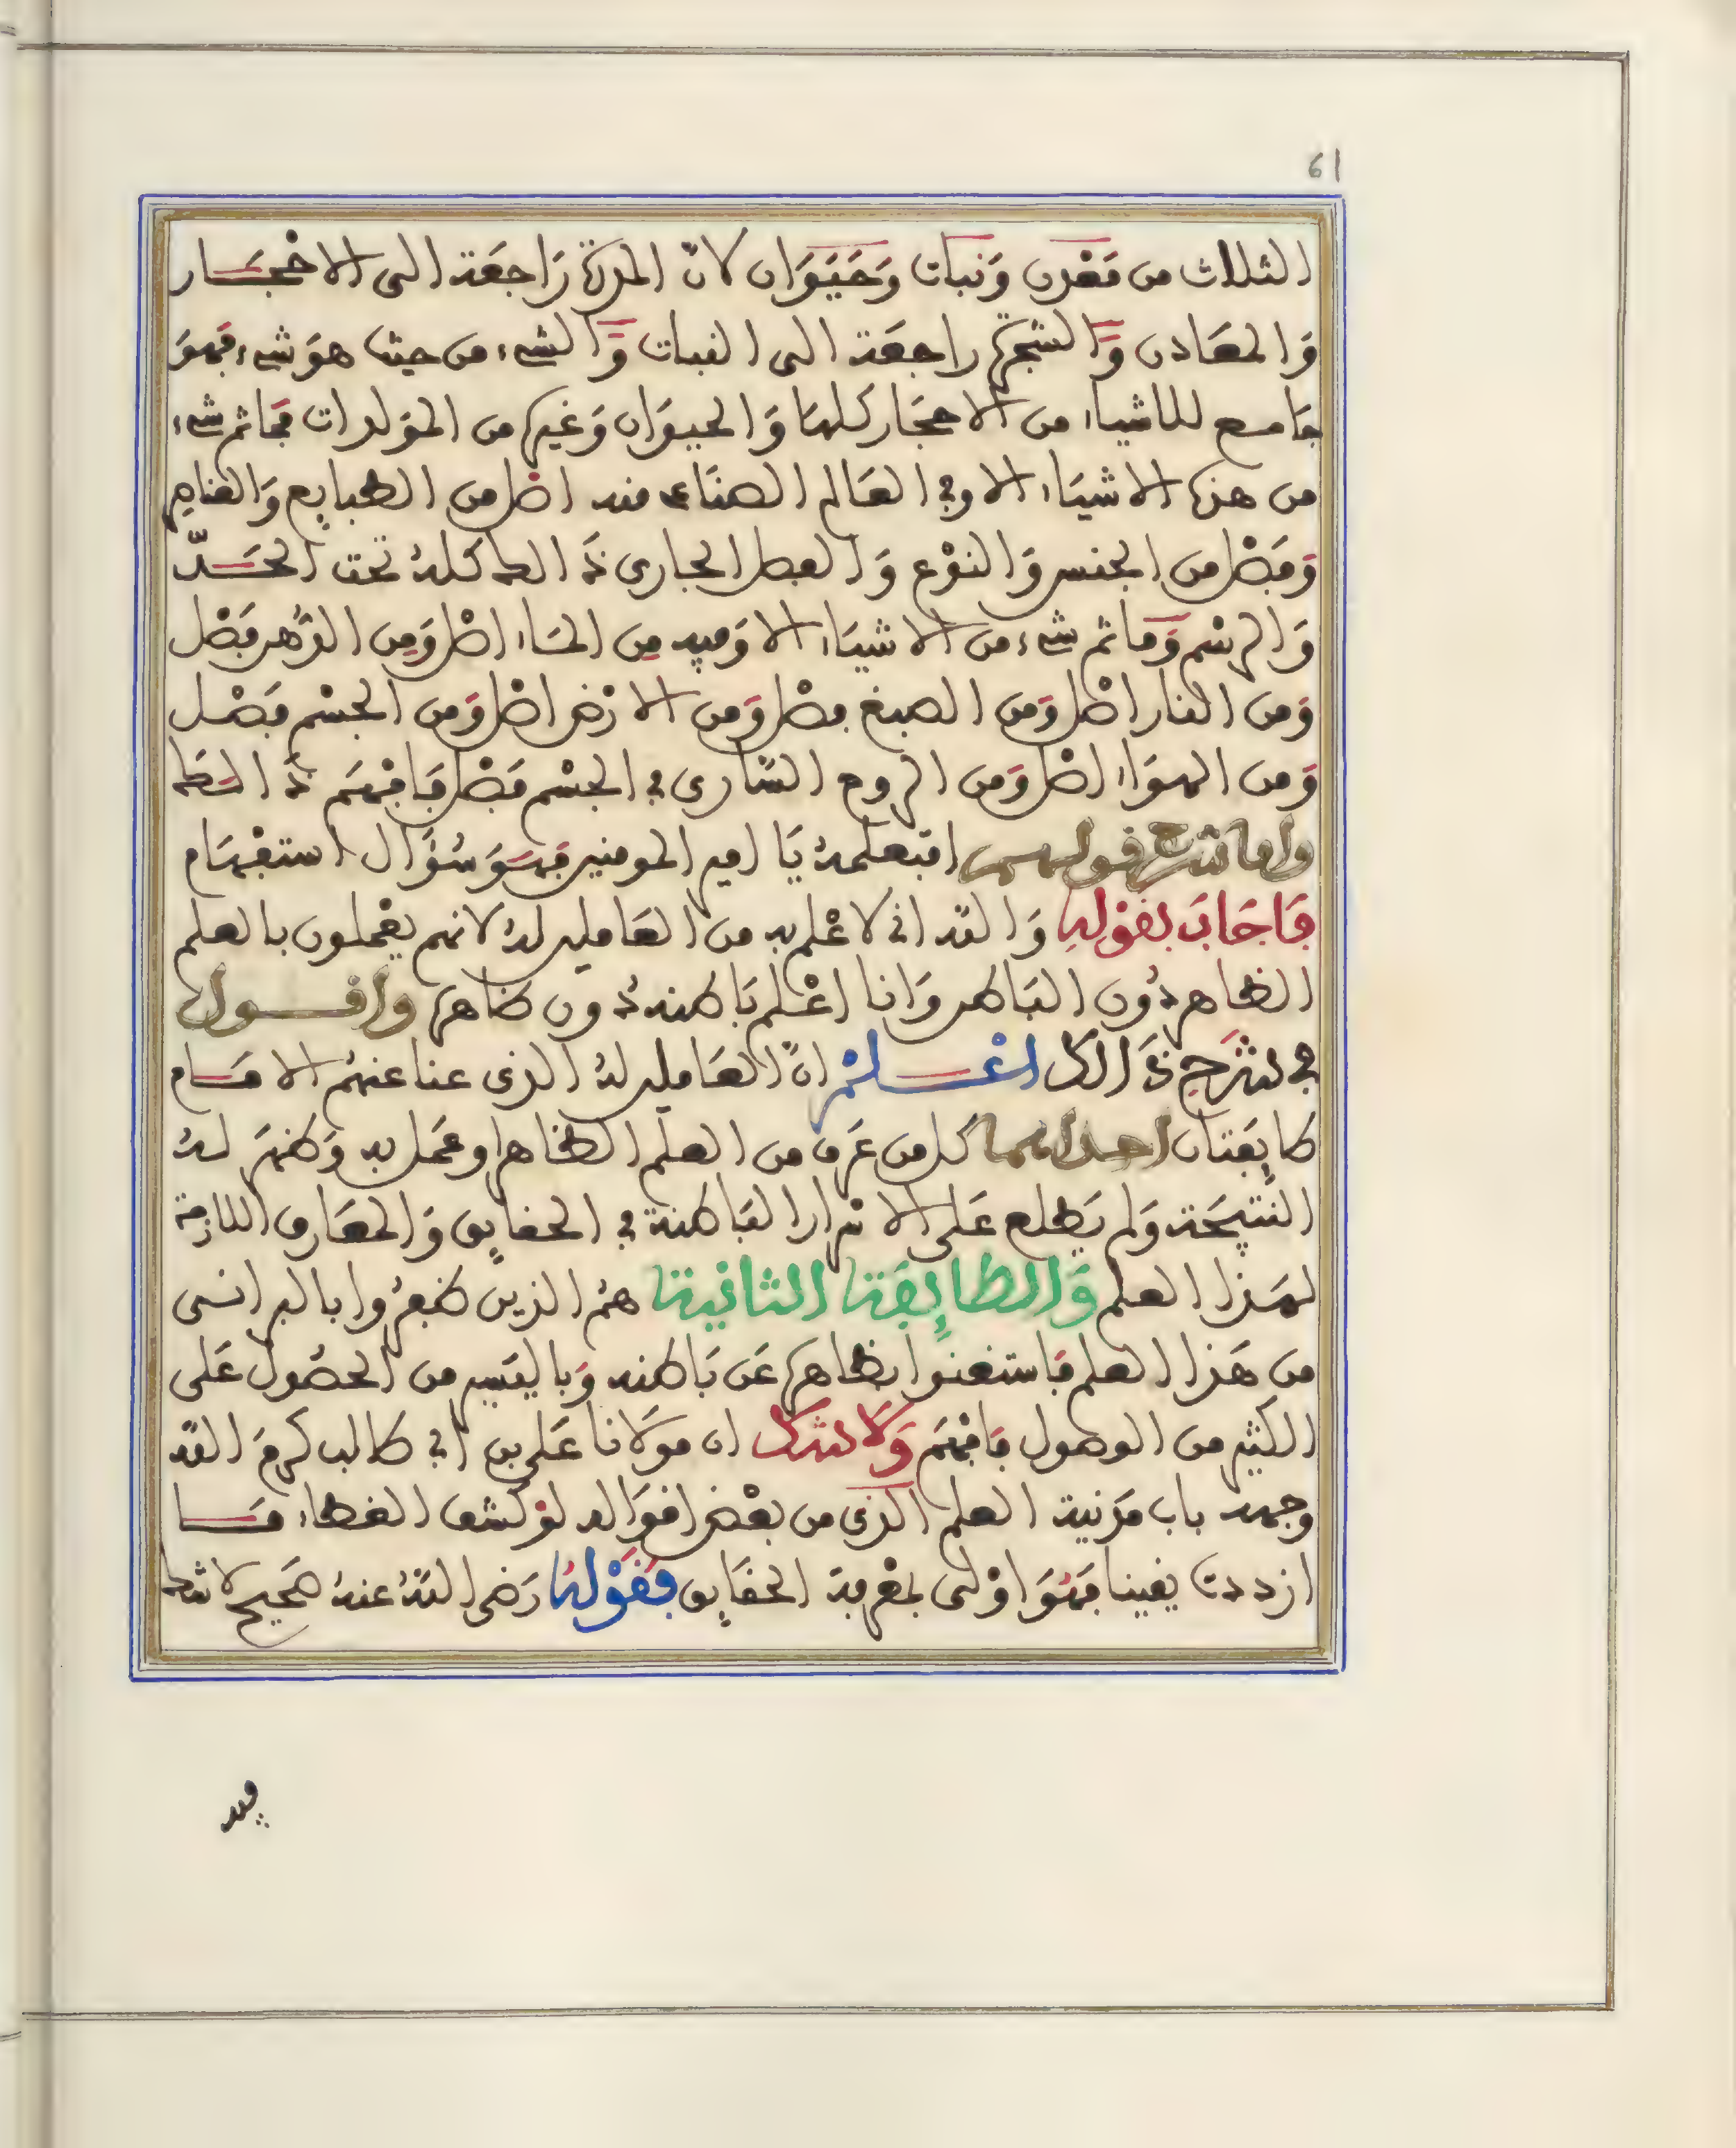 61
الثلاث من مَعْدن وَنبات وَحَيَوَان لانّ المدرة رَاجعَة الى الاحْجَار
وَالمعَادن وَّالشجرة راجعَة الى النبات وَّالشىء من حيث هوَ شىء فهوَ
جَامع للاشياء من الاحجَار كلهَا وَالحيوَان وَغيره من المؤلدات فمَا ثم شىء
من هذه الاشيَاء الا وفي العَالم الصناعى منه اصْل من الطبايع وَالعناصر
وَفَصْل من الجنس وَالنوْع وَالفصل الجارى ذَالك كلهُ تحت الحَدّ
وَالرسْم وَمَا ثم شىء من الاشيَاء الا وَفيه مِن المَاء اصْل وَمِن الدّهن فصْل
وَمن النار اصْل وَمن الصبغ فصْل وَمن الارْض اصْل وَمن الجسْم فصْل
وَمن الهوَاء اصْل وَمن الروح السَّارى في الجسْم فصْل فَافْهَم ذَالك
واما شرح قولهم افتعلمهُ يَا امير المومنين فهوَ سُؤَال استفهَام
فَاجَابَ بقوْلهِ وَالله انى لاعْلم به من العَاملين لهُ لانهم يعْملون بالعلم
الظاهر دُون البَاطن وَانا اعْلم بَاطنه دُون ظاهره واقول
في شرْحِ ذَالك اعْلمْ انّ العَاملين لهُ الذى عنا عنهُم الامَام
طايفَتان احداهما كل من عَرف من العلم الظاهر وعَمل به وَظهَر لهُ
النتيجَة وَلم يَطلع عَلى الاسْرار البَاطنة في الحقايق وَالمعَارف اللازمة
لهَذا العلم وَالطايِفَة الثانية همُ الذين ظفرُوا بالبرانى
من هَذا العلم فاستغنوا بظاهره عَن بَاطنه وَباليَسير من الحصُول عَلى
الكثير من الوصول فافْهَم وَلا شكَ ان موْلانا عَلى بن ابى طالب كرمَ الله
وجهه باب مَدينة العلم الذى من بعْض اقوَاله لوْ كشف الغطاء مَا
ازددت يقينا فهُوَ اوْلى بمعْرفة الحقَايق فقَوْلهُ رَضى اللهُ عنهُ صَحيح لا شك
فيه